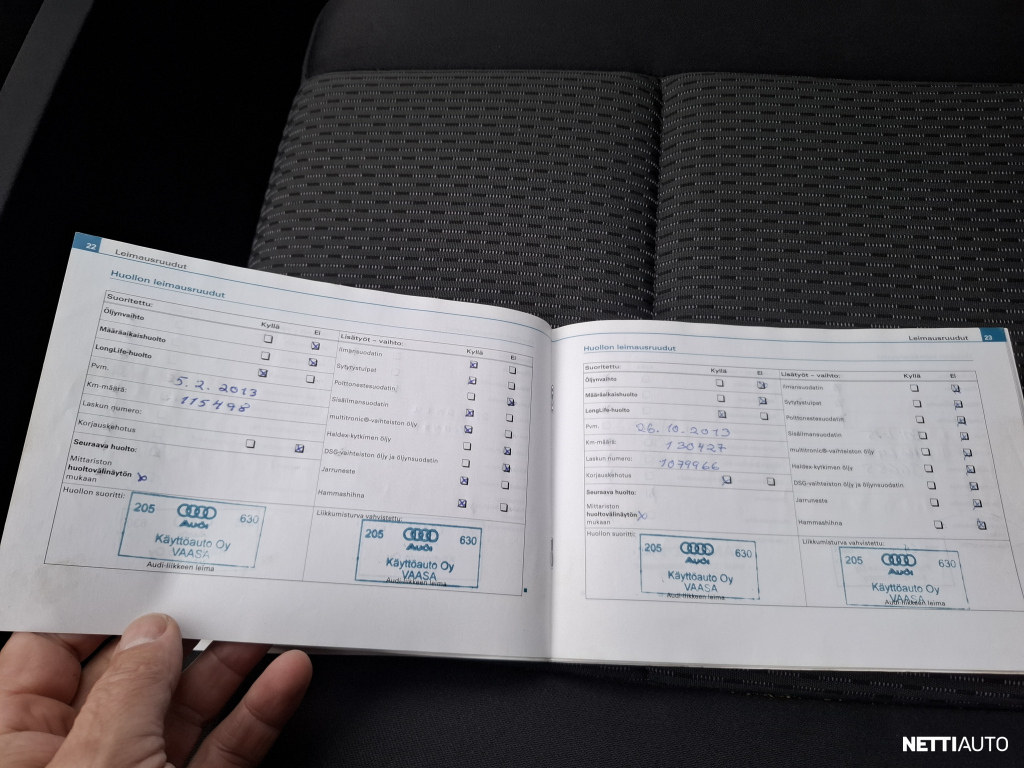 22
Leimausruudut
Huollon leimausruudut
Suoritettu:
Kyllä
Ei
Öljynvaihto
Määräaikaishuolto
LongLife-huolto
Pvm.
5.2.2013
Km-määrä:
115498
Laskun numero:
Korjauskehotus
Seuraava huolto:
Mittariston
huoltovälinäytön
mukaan
Huollon suoritti:
205
630
Audi
Käyttöauto Oy
VAASA
Audi-liikkeen leima
Lisätyöt – vaihto:
Kyllä
Ei
Ilmansuodatin
Sytytystulpat
Polttonestesuodatin
Sisäilmansuodatin
multitronic®-vaihteiston öljy
Haldex-kytkimen öljy
DSG-vaihteiston öljy ja öljynsuodatin
Jarruneste
Hammashihna
Liikkumisturva vahvistettu:
205
630
Audi
Käyttöauto Oy
VAASA
Audi-liikkeen leima
Leimausruudut
23
Huollon leimausruudut
Suoritettu:
Kyllä
Ei
Öljynvaihto
Määräaikaishuolto
LongLife-huolto
Pvm.
26.10.2013
Km-määrä:
130427
Laskun numero:
1079966
Korjauskehotus
Seuraava huolto:
Mittariston
huoltovälinäytön
mukaan
Huollon suoritti:
205
630
Audi
Käyttöauto Oy
VAASA
Audi-liikkeen leima
Lisätyöt – vaihto:
Kyllä
Ei
Ilmansuodatin
Sytytystulpat
Polttonestesuodatin
Sisäilmansuodatin
multitronic®-vaihteiston öljy
Haldex-kytkimen öljy
DSG-vaihteiston öljy ja öljynsuodatin
Jarruneste
Hammashihna
Liikkumisturva vahvistettu:
205
630
Audi
Käyttöauto Oy
VAASA
Audi-liikkeen leima
NETTIAUTO